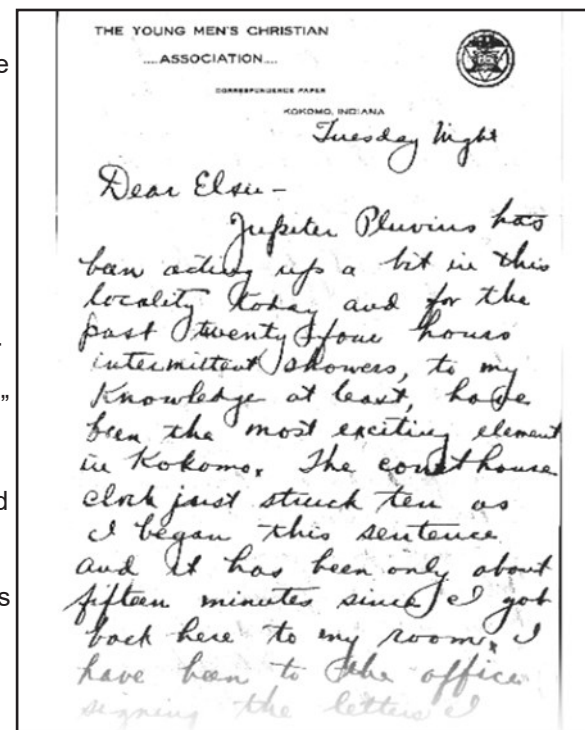 THE YOUNG MEN'S CHRISTIAN
....ASSOCIATION....
CORRESPONDENCE PAPER
KOKOMO, INDIANA
Tuesday Night
Dear Elsie –
Jupiter Pluvius has
been acting up a bit in this
locality today and for the
past twenty four hours
intermittent showers, to my
knowledge at least, have
been the most exciting element
in Kokomo. The courthouse
clock just struck ten as
I began this sentence
and it has been only about
fifteen minutes since I got
back here to my room. I
have been to the office
signing the letters I
e
”
d
s